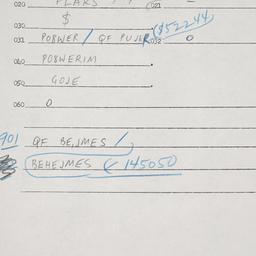 020 (021
$
030 (852244
031 POBWER / QF PUJER 032 0
040 POBWERIM
050 GOJE
060 0
901 QF BEJMES /
BEHEJMES < 145050